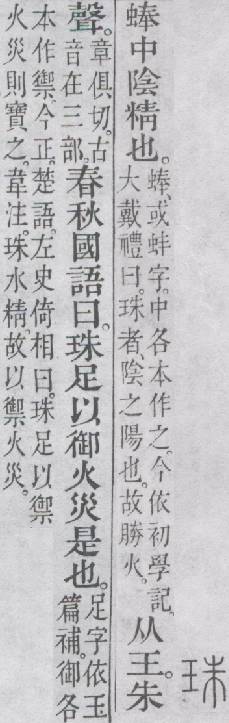 珠
蜯中陰精也。蜯、或蚌字。中各本作之。今依初學記。大戴禮曰。珠者、陰之陽也。故勝火。从王。朱
聲。章俱切。古音在三部。春秋國語曰。珠足以御火災是也。足字依玉篇補。御各
本作禦。今正。楚語。左史倚相曰。珠足以禦
火災則寶之。韋注。珠、水精。故以禦火災。